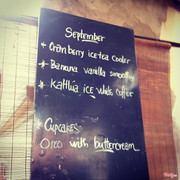 September
* Cranberry ice tea cooler
* Banana vanilla smoothy
* Kahlua ice whole coffee
* Cupcakes
Oreo with buttercream